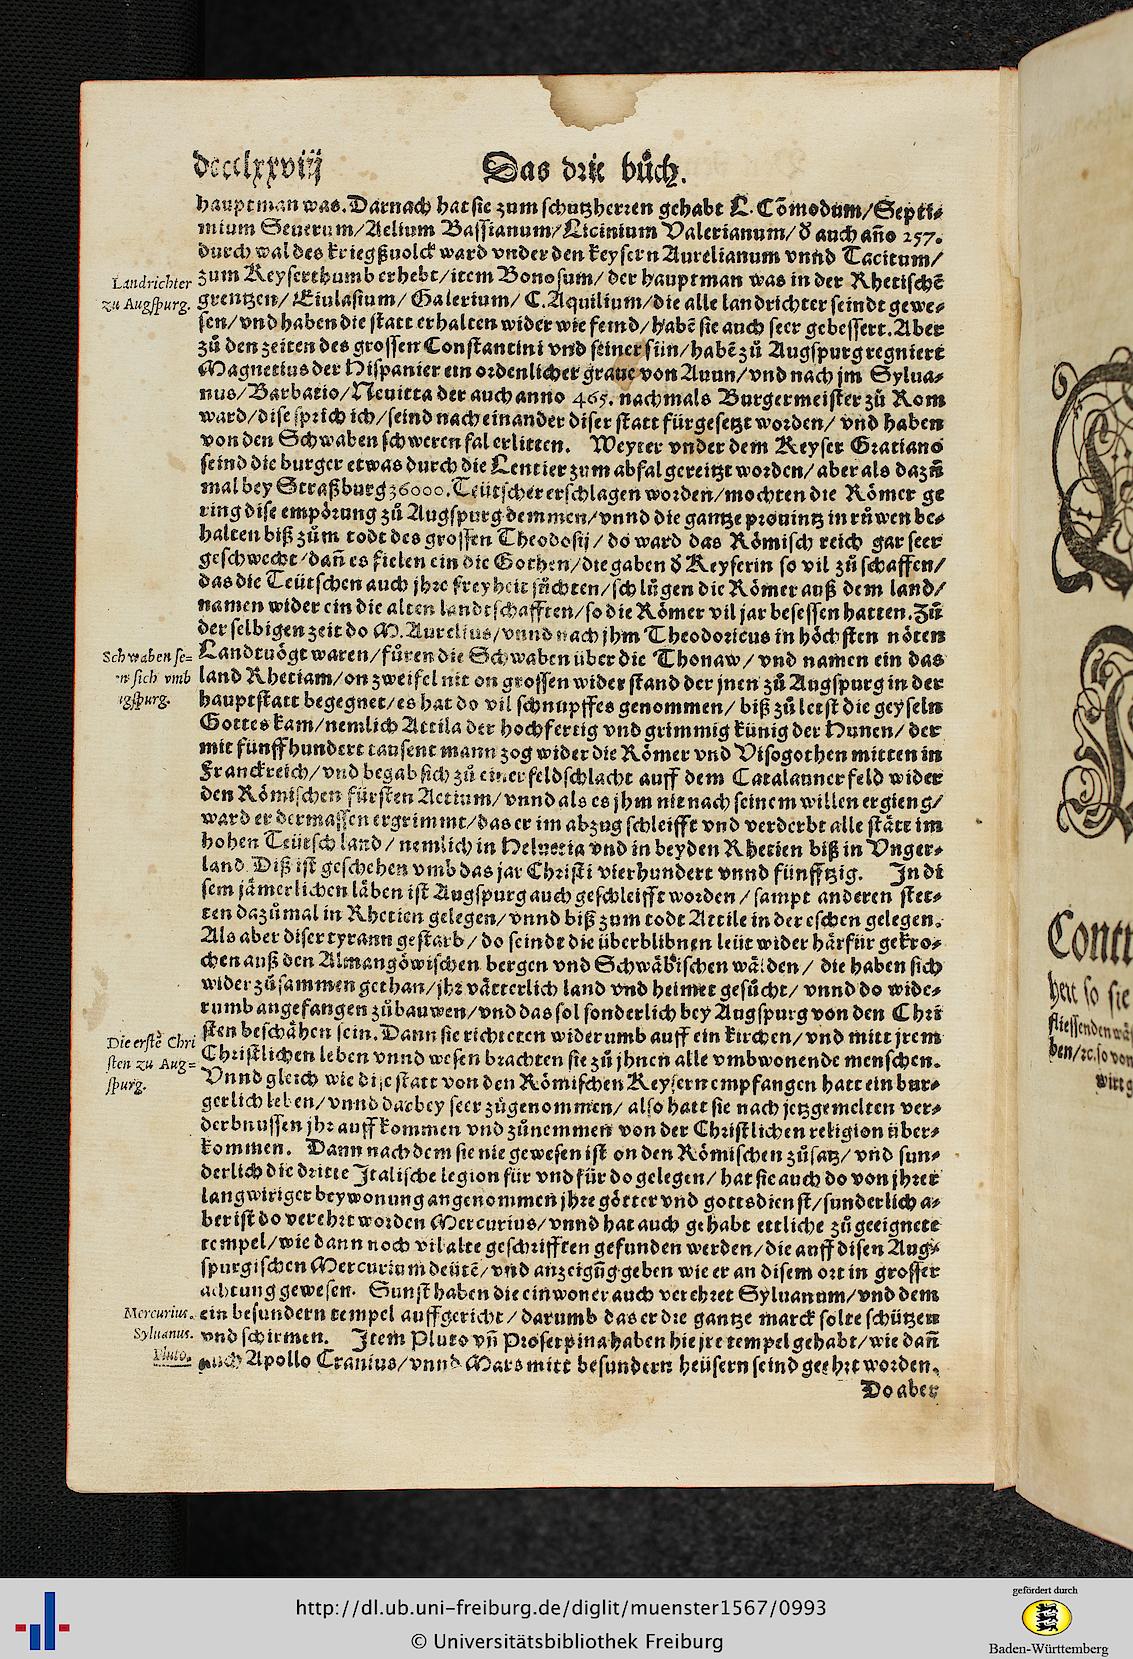 dccclxxviij Das drit bůch.
hauptman was. Darnach hat sie zum schutzherren gehabt L. Cõmodum/Septi-
mium Seuerum/Aelium Bassianum/Licinium Valerianum/ď auch añо 257.
durch wal des kriegßuolck ward vnder den keysern Aurelianum vnnd Tacitum/
Landrichter
zu Augspurg.
zum Keyserthumb erhebt/item Bonosum/der hauptman was in der Rhetischẽ
grentzen/ Eiulasium/ Galerium/ C. Aquilium/die alle landrichter seindt gewe-
sen/vnd haben die statt erhalten wider wie feind/habẽ sie auch seer gebessert. Aber
zů den zeiten des grossen Constantini vnd seiner sün/habẽ zů Augspurg regniert
Magnetius der Hispanier ein ordenlicher graue von Auun/vnd nach jm Sylua-
nus/Barbatio/Neuitta der auch anno 465. nachmals Burgermeister zů Rom
ward/dise sprich ich/seind nach einander diser statt fürgesetzt worden/ vnd haben
von den Schwaben schweren fal erlitten. Weyter vnder dem Keyser Gratiano
seind die burger etwas durch die Lentier zum abfal gereitzt worden/aber als dazů
mal bey Straßburg 36000. Teütscher erschlagen worden/mochten die Römer ge
ring dise empörung zů Augspurg demmen/vnnd die gantze prouintz in růwen be-
halten biß zům todt des grossen Theodosij/ do ward das Römisch reich gar seer
geschwecht/dañ es fielen ein die Gothen/die gaben ď Keyserin so vil zů schaffen/
das die Teütschen auch jhre freyheit sůchten/schlůgen die Römer auß dem land/
namen wider ein die alten landtschafften/so die Römer vil jar besessen hatten. Zů
der selbigen zeit do M. Aurelius/vnnd nach jhm Theodoricus in höchsten nöten
Schwaben se=
sich vmb
Landtuögt waren/fůren die Schwaben über die Thonaw/ vnd namen ein das
land Rhetiam/on zweifel nit on grossen widerstand der jnen zů Augspurg in der
hauptstatt begegnet/es hat do vil schnupffes genommen/ biß zů letst die geyseln
Gottes kam/nemlich Attila der hochfertig vnd grimmig künig der Hunen/ der
mit fünffhundert tausent mann zog wider die Römer vnd Visogothen mitten in
Franckreich/vnd begab sich zů einer feldschlacht auff dem Catalauner feld wider
den Römischen fürsten Aetium/vnnd als es jhm nie nach seinem willen ergieng/
ward er dermassen ergrimmt/das er im abzug schleifft vnd verderbt alle stätt im
hohen Teütschland/ nemlich in Heluetia vnd in beyden Rhetien biß in Vnger-
land. Diß ist geschehen vmb das jar Christi vierhundert vnnd fünfftzig. In di
sem jämerlichen läben ist Augspurg auch geschleifft worden/ sampt anderen stet-
ten dazůmal in Rhetien gelegen/vnnd biß zum todt Attile in der eschen gelegen.
Als aber diser tyrann gestarb/do seindt die überblibnen leüt wider härfür gekro-
chen auß den Almangöwischen bergen vnd Schwäbischen wälden/ die haben sich
wider zůsammen gethan/jhr vätterlich land vnd heimet gesůcht/ vnnd do wide-
rumb angefangen zůbauwen/vnd das sol sonderlich bey Augspurg von den Chri
Die erstẽ Chri
sten zu Aug=
spurg.
sten beschähen sein. Dann sie richteten widerumb auff ein kirchen/vnd mitt jrem
Christlichen leben vnnd wesen brachten sie zů jhnen alle vmbwonende menschen.
Vnnd gleich wie dise statt von den Römischen Keysern empfangen hatt ein bur-
gerlich leben/vnnd darbey seer zůgenommen/ also hatt sie nach jetzgemelten ver-
derbnussen jhr auffkommen vnd zůnemmen von der Christlichen religion über-
kommen. Dann nach dem sie nie gewesen ist on den Römischen zůsatz/ vnd sun-
derlich die dritte Italische legion für vnd für do gelegen/ hat sie auch do von jhrer
langwiriger beywonung angenommen jhre götter vnd gottsdienst/sunderlich a-
ber ist do verehrt worden Mercurius/vnnd hat auch gehabt ettliche zů geeignete
tempel/wie dann noch vil alte geschrifften gefunden werden/die auff disen Aug-
spurgischen Mercurium deütẽ/vnd anzeigũg geben wie er an disem ort in grosser
achtung gewesen. Sunst haben die einwoner auch verehret Syluanum/vnd dem
Mercurius.
Syluanus.
Pluto.
ein besundern tempel auffgericht/ darumb das er die gantze marck solte schützen
vnd schirmen. Item Pluto vñ Proserpina haben hie jre tempel gehabt/wie dañ
auch Apollo Cranius/vnnd Mars mitt besundern heüsern seind geehrt worden.
Do aber
Contr
heit so sie
fliessenden wäs
ben/zc. so von
wirt g
http://dl.ub.uni-freiburg.de/diglit/muenster1567/0993
© Universitätsbibliothek Freiburg
gefördert durch
Baden-Württemberg